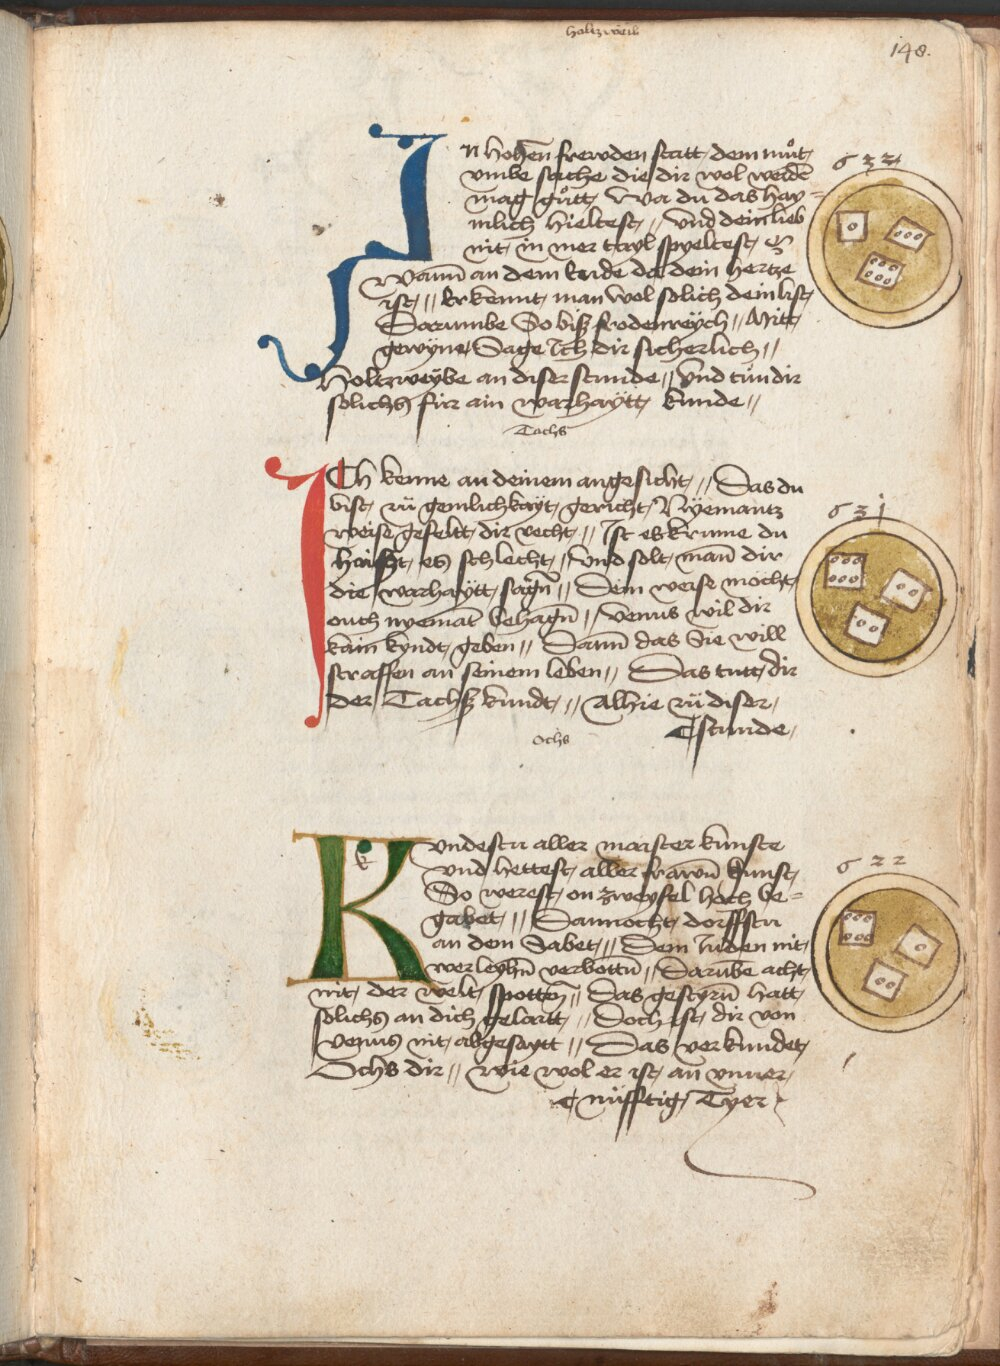 holtzweib
148.
In hohen frewden statt dem muͦt
vmbe sache die dir wol werden
mag guͦtt, Wa du das hay=
mlich hieltest // Vnd dein lieb
nit in mer tayl spyeltest
Wann an dem ende da dein hertze
ist // Erkennt man wol solich dein list
Darumbe So biß frodenreych // Mitt
gewyne Sage Ich dir sicherlich //
Holtzweybe an diser stunde // Vnd tuͦn dir
solichs für ain warhaytt kunde //
Tachs
ICh kenne an deinem angesicht // Das du
bist zü gemlichkayt gericht Nyemantz
weise gefellt dir recht // Ist es krume du
haist es schlecht // Vnd solt man dir
die warhaytt sagn // Dein weise möcht
ouch nyemat behagn // Venus wil dir
kain kyndt geben // Dann das Sie will
straffen an seinem leben // Das tutt dir
der Tachß kundt // Alhie zü diser
stunde
631
ochs
Kundestu aller maister kunste
vnd hettest aller frawn kunst
So werest on zweyfel hoch be=
gabet // Dannocht dorfftstu
an dem Sabet // Dem Juden nit
wer leyhn verbottn // Darumbe acht
nit der welt spotten // Das gestyrn hatt
solichs an dich gelartt // Doch ist dir von
venus nit abgesaytt // Das verkundet
Ochs dir // wie wol er ist an vnuer
nüfftig Tyer
622